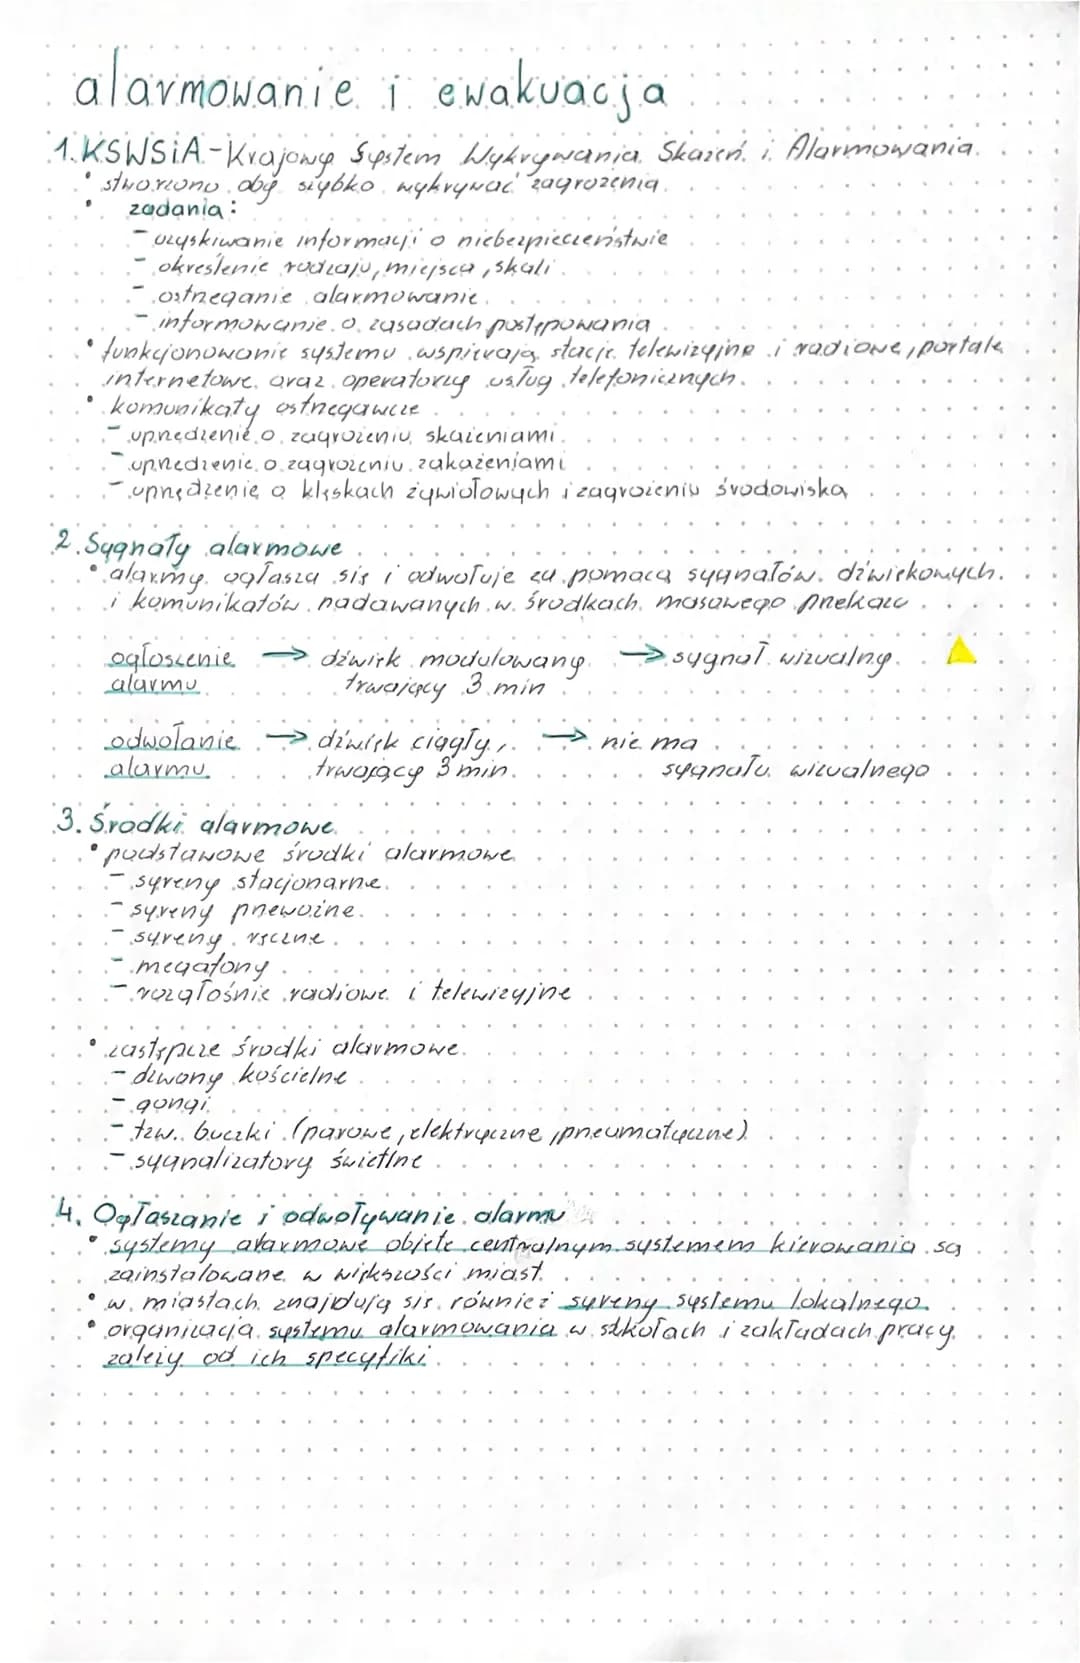 alarmowanie i ewakuacja
1. KSWSiA - Krajowy System Wykrywania Skażeń i Alarmowania
• stworzono aby szybko wykrywać zagrożenia
• zadania:
- uzyskiwanie informacji o niebezpieczeństwie
- określenie rodzaju, miejsca, skali
- ostrzeganie alarmowanie
- informowanie o zasadach postępowania
• funkcjonowanie systemu wspierają stacje telewizyjne i radiowe, portale
internetowe oraz operatorzy usług telefonicznych.
• komunikaty ostrzegawcze
- uprzedzenie o zagrożeniu skażeniami
- uprzedzenie o zagrożeniu zakażeniami
- uprzedzenie o klęskach żywiołowych i zagrożeniu środowiska
2. Sygnały alarmowe
• alarmy ogłasza się i odwołuje za pomocą sygnałów dźwiękowych
i komunikatów nadawanych w środkach masowego przekazu
ogłoszenie → dźwięk modulowany → sygnał wizualny
alarmu trwający 3 min
odwołanie → dźwięk ciągły, → nie ma
alarmu trwający 3 min. sygnału wizualnego
3. Środki alarmowe
• podstawowe środki alarmowe
- syreny stacjonarne
- syreny przewoźne
- syreny ręczne
- megafony
- rozgłośnie radiowe i telewizyjne
• zastępcze środki alarmowe
- dzwony kościelne
- gongi
- tzw. buczki (parowe, elektryczne, pneumatyczne)
- sygnalizatory świetlne
4. Ogłaszanie i odwoływanie alarmu
• systemy alarmowe objęte centralnym systemem kierowania są
zainstalowane w większości miast.
• w miastach znajdują się również syreny systemu lokalnego.
• organizacja systemu alarmowania w szkołach i zakładach pracy
zależy od ich specyfiki.